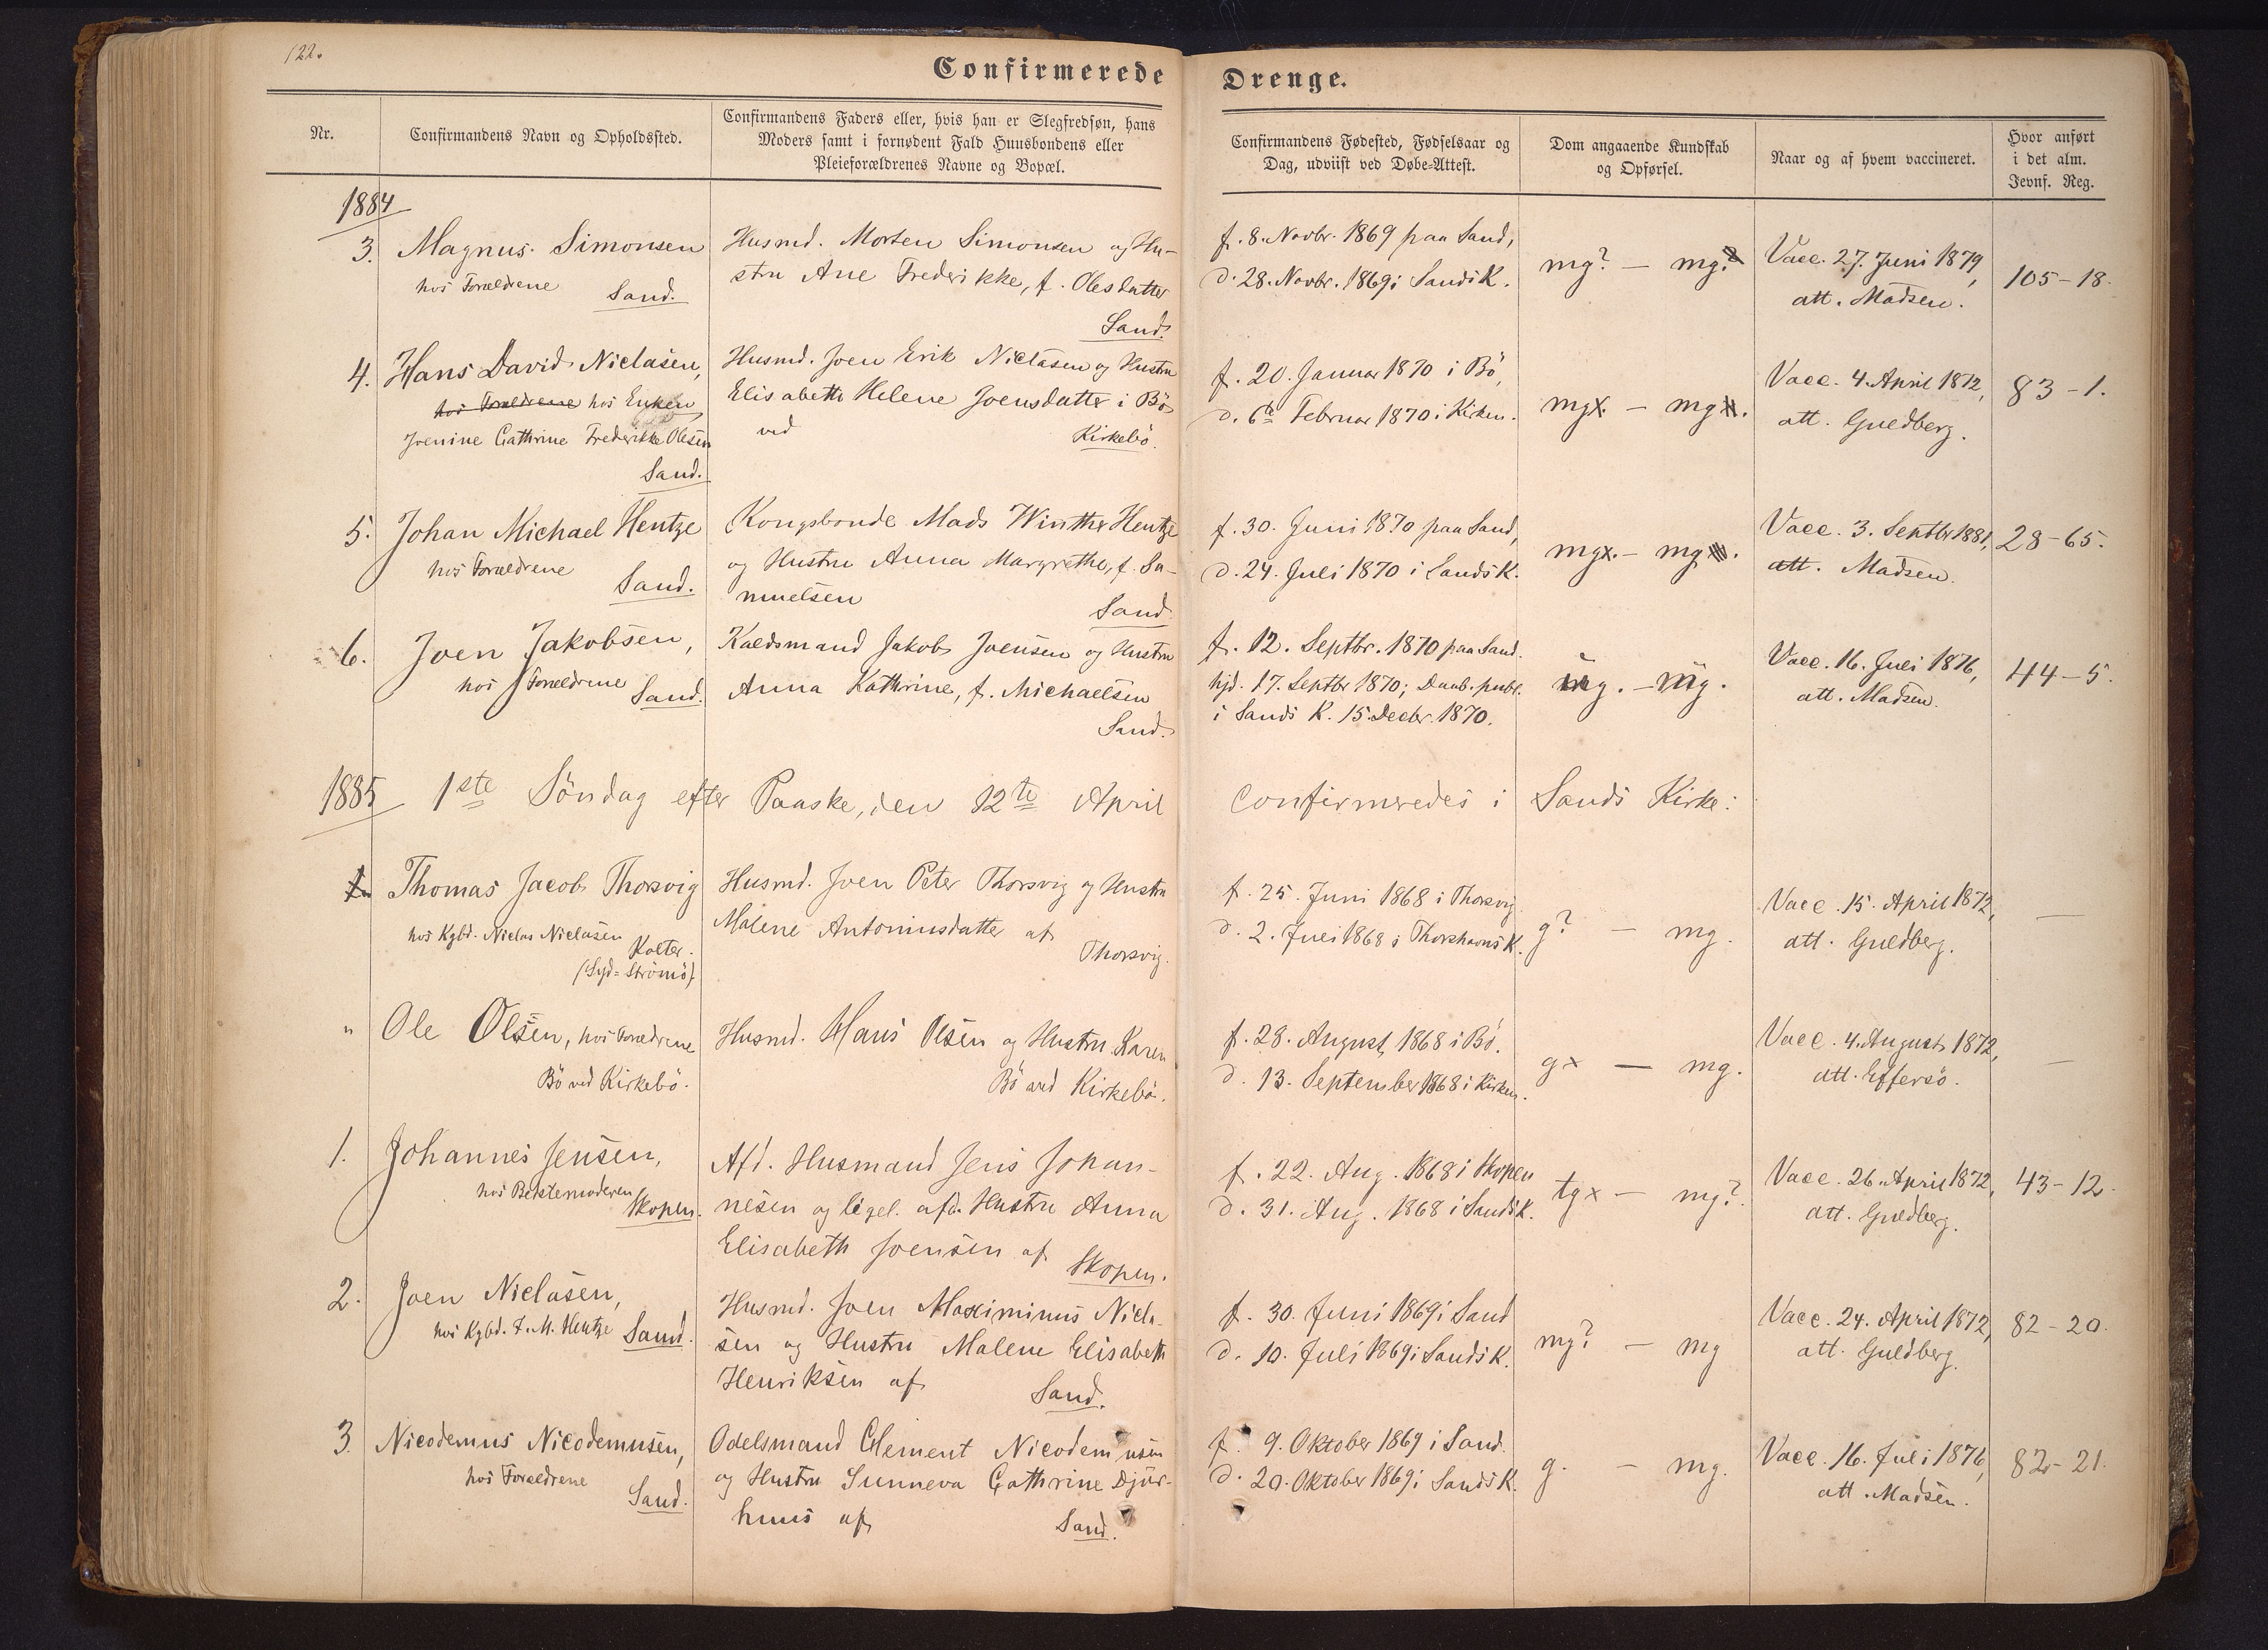 122.
Confirmerede Drenge.
Nr.
Confirmandens Navn og Opholdssted.
Confirmandens Faders eller, hvis han er Slegfredsøn, hans
Moders samt i fornødent Fald Huusbondens eller
Pleieforældrenes Navne og Bopæl.
Confirmandens Fødested, Fødselsaar og
Dag, udviist ved Døbe-Attest.
Dom angaaende Kundskab
og Opførsel.
Naar og af hvem vaccineret.
Hvor anført
i det alm.
Jevnf. Reg.
1884
3. Magnus Simonsen
hos Forældrene
Sand.
Husmd. Morten Simonsen og Hu-
stru Ane Frederikke, f. Olesdatter
Sand.
f. 8. Novbr. 1869 paa Sand,
d. 28. Novbr. 1869 i Sands K.
mg? — mg.
Vacc. 27. Juni 1879,
att. Madsen.
105-18.
4. Hans David Niclasen,
hos Forældrene hos Enken
Joenine Cathrine Frederikke Olesen
Sand.
Husmd. Joen Erik Niclasen og Hustru
Elisabeth Helene Joensdatter i Bö
ved Kirkebö.
f. 20. Januar 1870 i Bö,
d. 6te Februar 1870 i Kirken.
mgx. — mg.
Vacc. 4. April 1872,
att. Guldberg.
83-1.
5. Johan Michael Hentze
hos Forældrene
Sand.
Kongsbonde Mads Winther Hentze
og Hustru Anna Margrethe, f. Sa-
muelsen
Sand
f. 30. Juni 1870 paa Sand,
d. 24. Juli 1870 i Sands K.
mgx. — mg.
Vacc. 3. Septbr 1881,
att. Madsen.
28-65.
6. Joen Jakobsen,
hos Forældrene
Sand.
Kaldsmand Jakob Joensen og Hustru
Anna Kathrine, f. Michaelsen
Sand.
f. 12. Septbr. 1870 paa Sand.
hjd. 17. Septbr 1870; Daab. publ.
i Sands K. 15. Decbr. 1870.
mg. — mg.
Vacc. 16. Juli 1876,
att. Madsen.
44-5.
1885 1ste Söndag efter Paaske, den 12te April confirmeredes i Sands Kirke:
Thomas Jacob Thorsvig
hos Kgbd. Niclas Niclasen
Kolter.
(Syd-Strömö)
Husmd. Joen Peter Thorsvig og Hustru
Malene Antoniusdatter af
Thorsvig.
f. 25. Juni 1868 i Thorsvig
d. 2. Juli 1868 i Thorshavns K.
g? — mg.
Vacc. 15. April 1872,
att. Guldberg.
—
" Ole Olsen, hos Forældrene
Bö ved Kirkebö.
Husmd. Hans Olsen og Hustru Karen
Bö ved Kirkebö.
f. 28. August 1868 i Bö.
d. 13. September 1868 i Kirken.
gx — mg.
Vacc. 4. August 1872,
att. Effersö.
—
1. Johannes Jensen,
hos Bedstemoderen
Skopen.
Afd. Husmand Jens Johan-
nesen og ligel. afd. Hustru Anna
Elisabeth Joensen af
Skopen.
f. 22. Aug. 1868 i Skopen
d. 31. Aug. 1868 i Sands K.
tgx — mg?
Vacc. 26. April 1872,
att. Guldberg.
43-12.
2. Joen Niclasen,
hos Kgbd. J. M. Hentze
Sand.
Husmd. Joen Maximinus Nicla-
sen og Hustru Malene Elisabeth
Henriksen af
Sand.
f. 30. Juni 1869 i Sand
d. 10. Juli 1869 i Sands K.
mg? — mg
Vacc. 24. April 1872,
att. Guldberg.
82-20.
3. Nicodemus Nicodemusen,
hos Forældrene
Sand.
Odelsmand Clement Nicodemusen
og Hustru Sunneva Cathrine Djur-
huus af
Sand.
f. 9. Oktober 1869 i Sand.
d. 20. Oktober 1869 i Sands K.
g. — mg.
Vacc. 16. Juli 1876,
att. Madsen.
82-21.